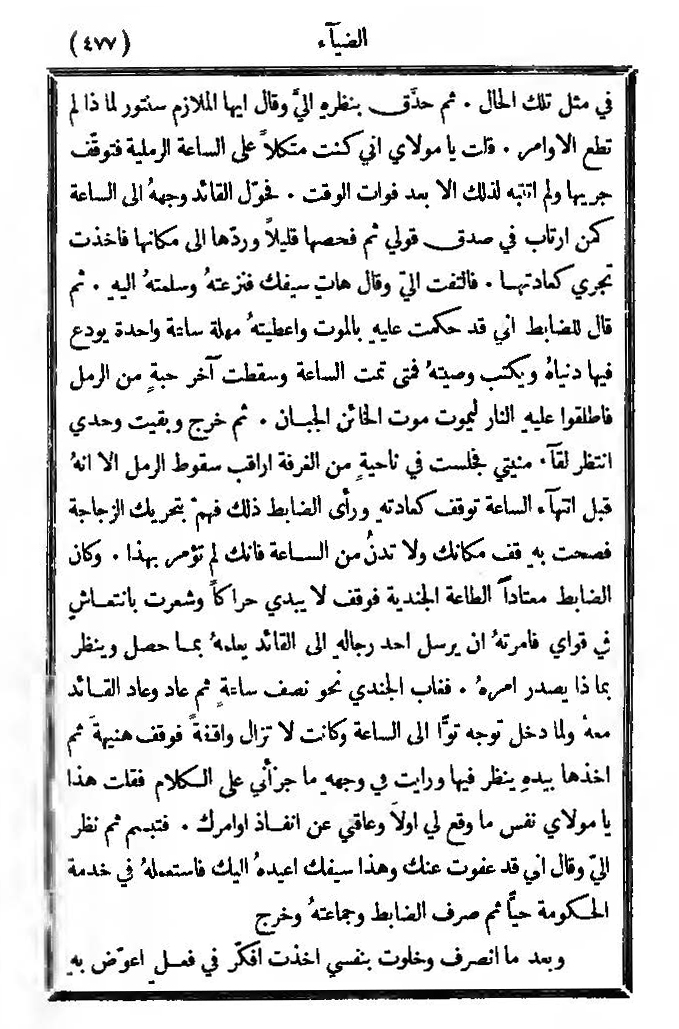 الضيآء
(٤٧٧)
في مثل تلك الحال . ثم حدَّق بنظرهِ اليَّ وقال ايها الملازم سنتور لماذا لم
تطع الاوامر . قلت يا مولاي اني كنت متكلاً على الساعة الرملية فتوقَّف
جريها ولم انتبه لذلك الا بعد فوات الوقت . فحوَّل القائد وجههُ الى الساعة
كمن ارتاب في صدق قولي ثم فحصها قليلاً وردّها الى مكانها فاخذت
تجري كعادتها . فالتفت اليَّ وقال هاتِ سيفك فنزعتهُ وسلمتهُ اليهِ . ثم
قال للضابط اني قد حكمت عليهِ بالموت واعطيتهُ مهلة ساعة واحدة يودع
فيها دنياهُ ويكتب وصيتهُ فمتى تمت الساعة وسقطت آخر حبةٍ من الرمل
فاطلقوا عليهِ النار ليموت موت الخائن الجبان . ثم خرج وبقيت وحدي
انتظر لقآء منيتي فجلست في ناحيةٍ من الغرفة اراقب سقوط الرمل الا انهُ
قبل انتهآء الساعة توقف كعادتهِ ورأى الضابط ذلك فهمّ بتحريك الزجاجة
فصحت بهِ قف مكانك ولا تدنُ من الساعة فانك لم تؤمر بهذا . وكان
الضابط معتاداً الطاعة الجندية فوقف لا يبدي حراكاً وشعرت بانتعاش
في قواي فامرتهُ ان يرسل احد رجالهِ الى القائد يعلمهُ بما حصل وينظر
بماذا يصدر امرهُ . فغاب الجندي نحو نصف ساعةٍ ثم عاد وعاد القائد
معهُ ولما دخل توجه توًّا الى الساعة وكانت لا تزال واقفةً فوقف هنيهةً ثم
اخذها بيدهِ ينظر فيها ورايت في وجههِ ما جرأني على الكلام فقلت هذا
يا مولاي نفس ما وقع لي اولاً وعاقني عن انفاذ اوامرك . فتبسم ثم نظر
اليَّ وقال اني قد عفوت عنك وهذا سيفك اعيدهُ اليك فاستعملهُ في خدمة
الحكومة حيًّا ثم صرف الضابط وجماعتهُ وخرج
وبعد ما انصرف وخلوت بنفسي اخذت افكّر في فعلٍ اعوّض بهِ